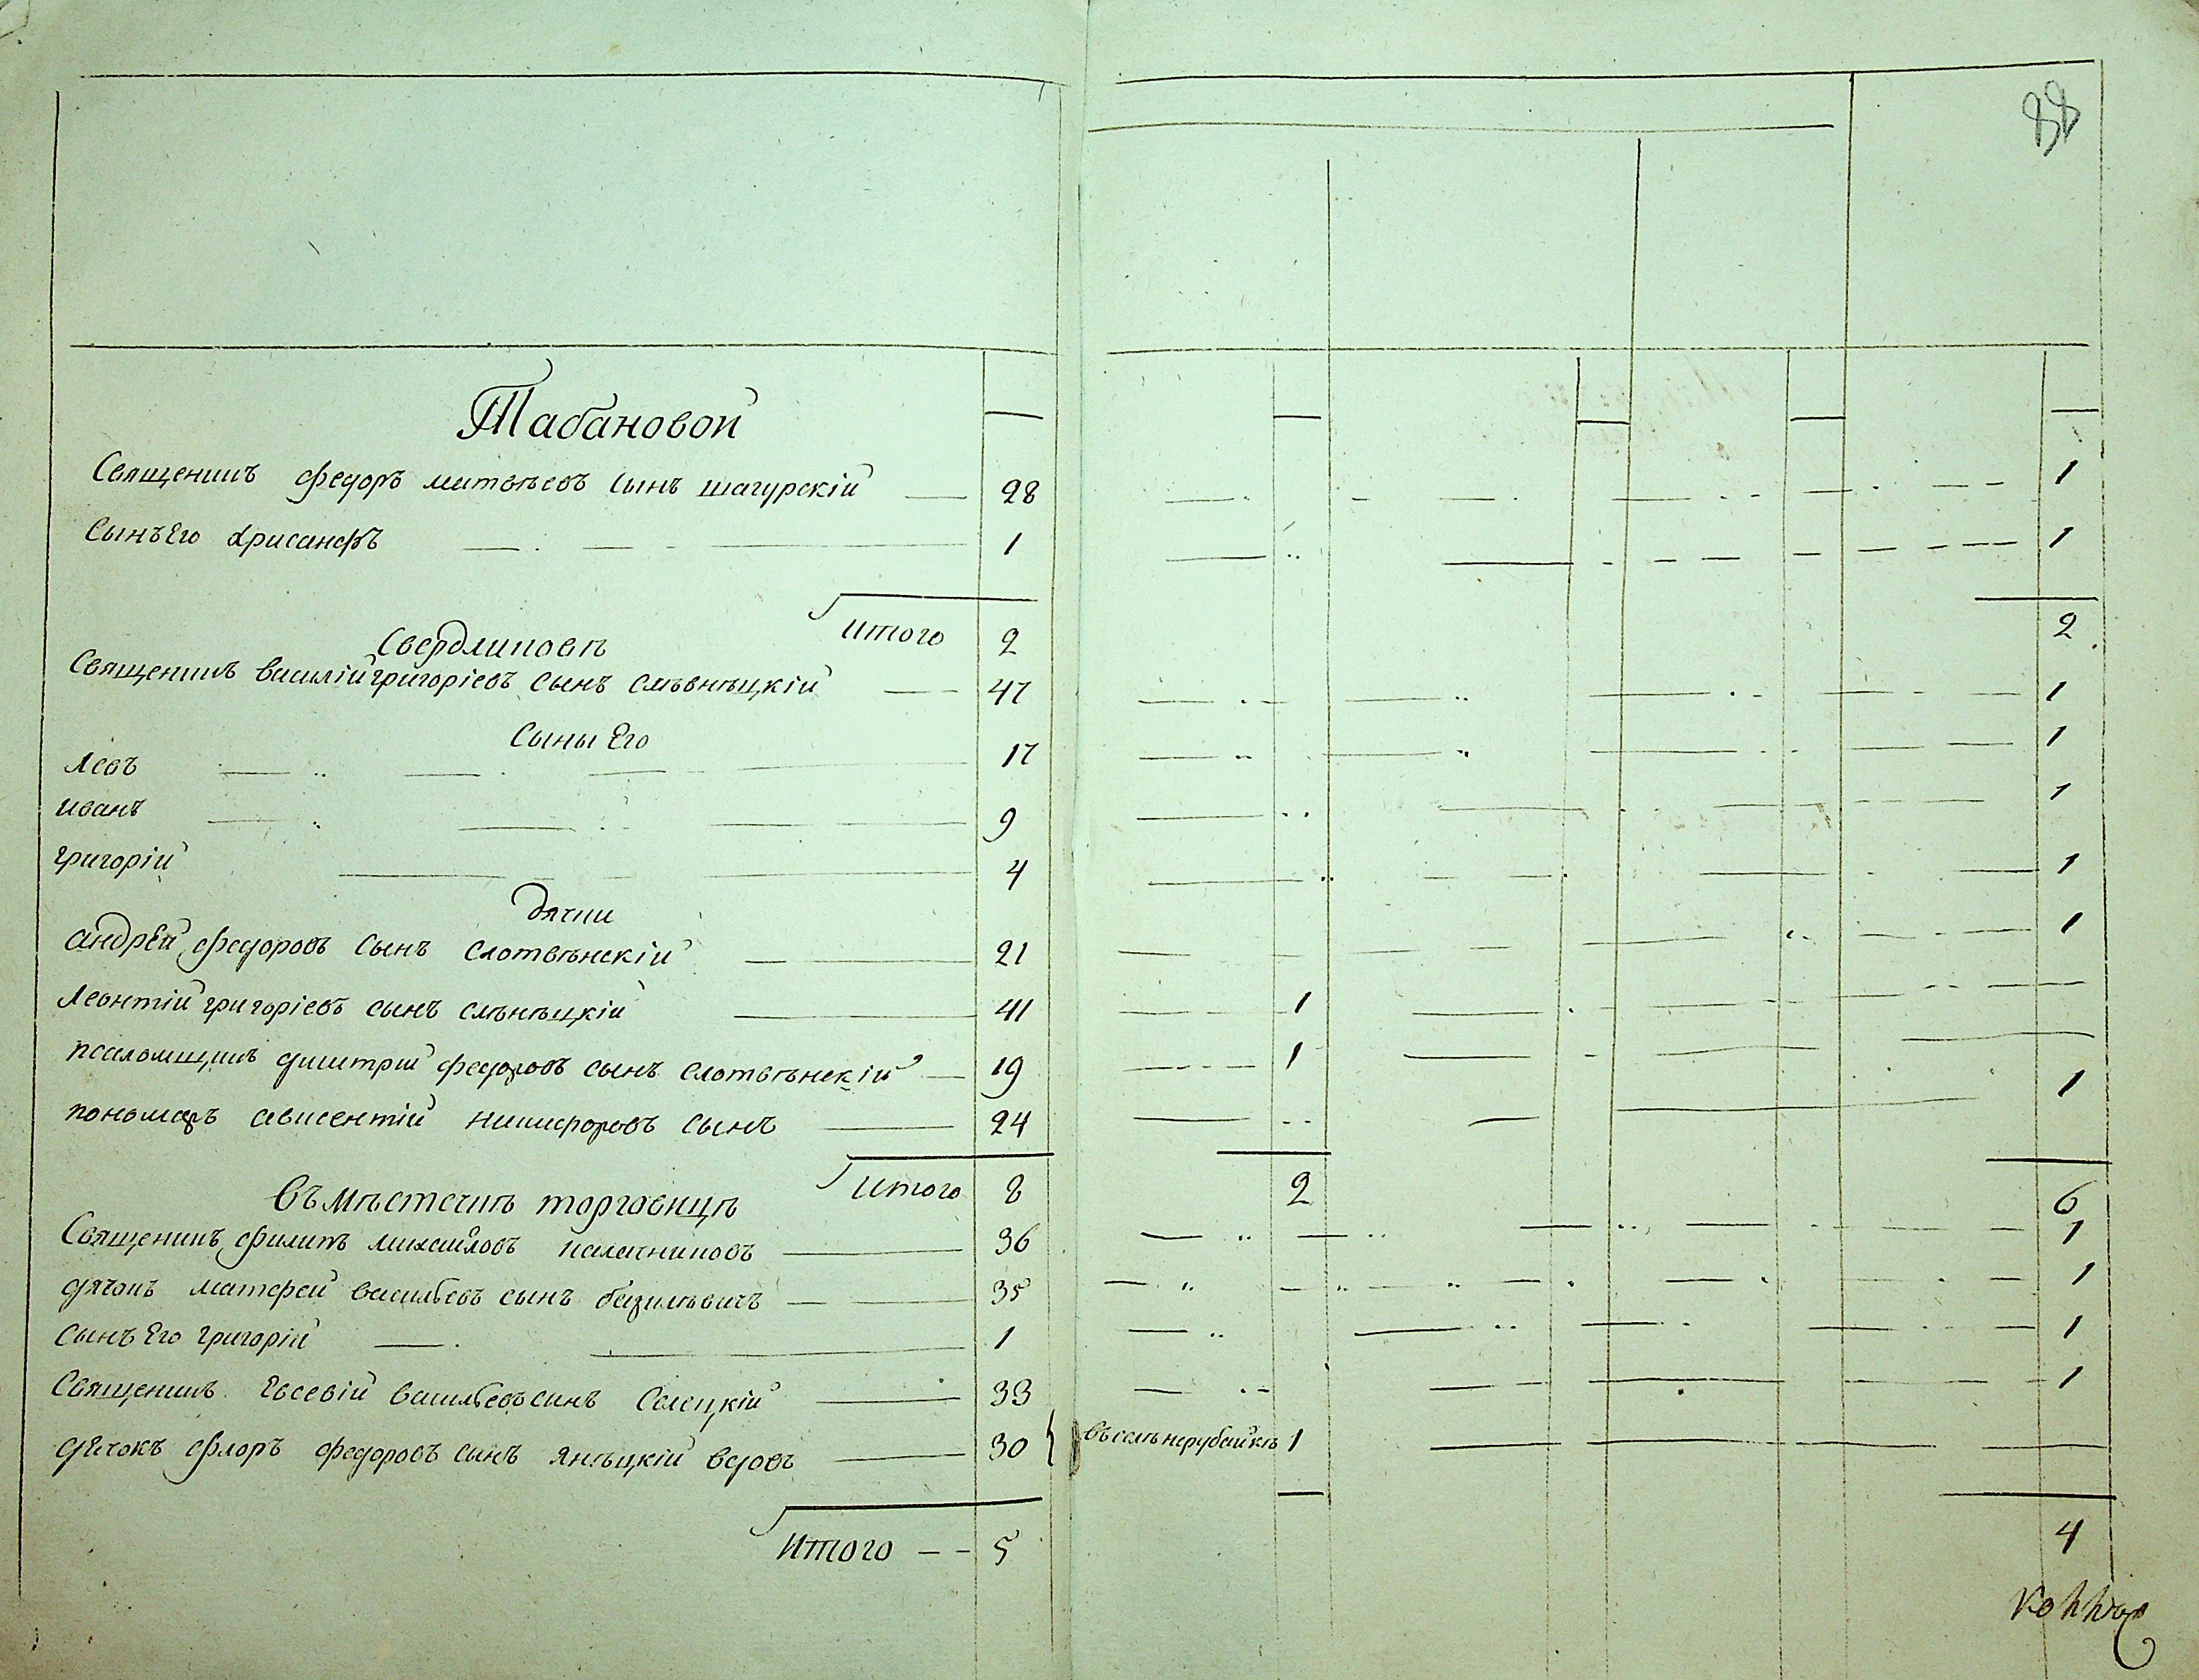 88
Табановой
Священикъ Федоръ матвѣевъ сынъ шагурскій 28 1
Сынъ Его Хрисанфъ 1 1
Итого 2 2
Свердликовѣ
Священикъ василій григоріевъ сынъ 47 1
Сыны Его
Левъ 17 1
иванъ 9 1
григорій 4 1
дячки
андрей федоровъ сынъ слотвѣнскій 21 1
Леонтій григоріевъ сынъ 41 1
псаломщикъ димитрій федоровъ сынъ слотвѣнскій 19 1
пономаръ авксентій никифоровъ сынъ 24 1
Итого 8 2 6
Въ мѣстечкѣ торговицѣ
Священикъ филипъ михайловъ 36 1
дячокъ матфей васильевъ сынъ базилѣвичъ 35 1
Сынъ Его григорій 1 1
Священикъ Евсевій васильевъ синъ Селецкій 33 1
дячокъ флоръ федоровъ синъ янѣцкій вдовъ 30 въ селѣ нерубайкѣ 1
Итого 5 4